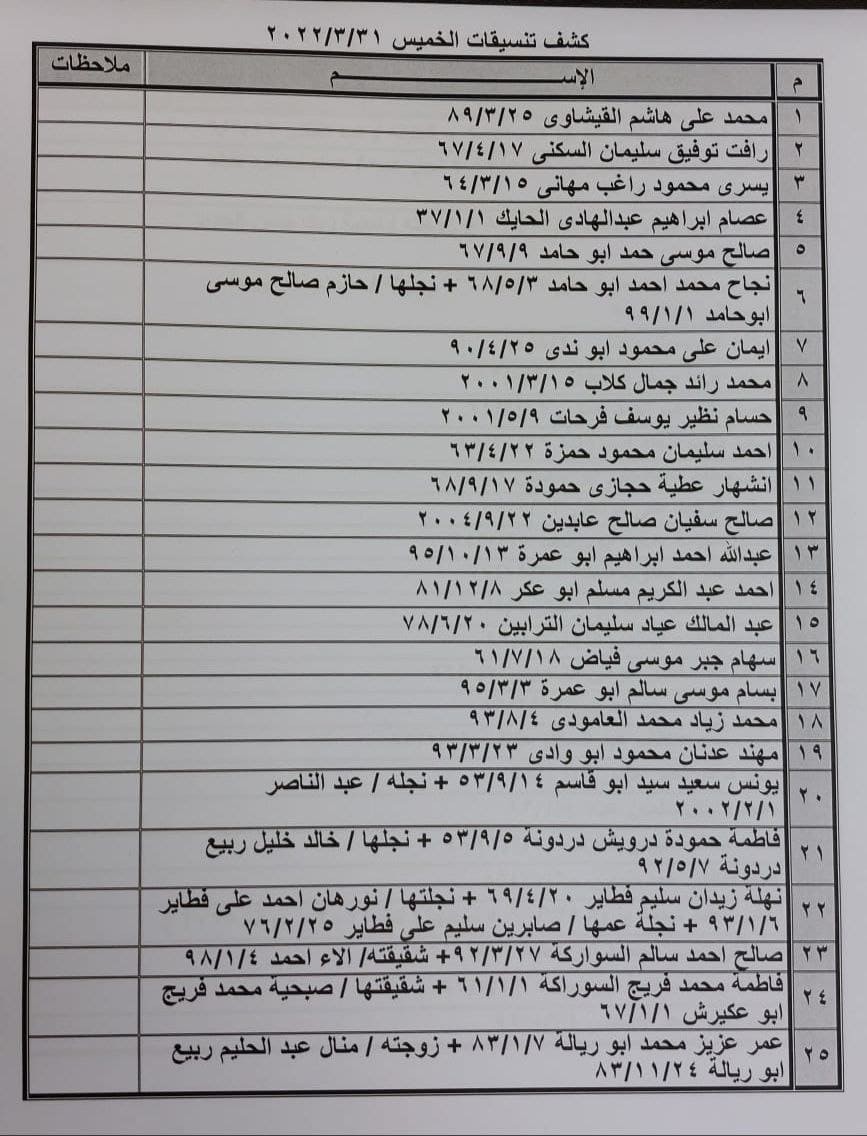 كشف تنسيقات الخميس ٢٠٢٢/٣/٣١
م الإســـــــم ملاحظات
١ محمد على هاشم القيشاوى ٨٩/٣/٢٥
٢ رافت توفيق سليمان السكنى ٦٧/٤/١٧
٣ يسرى محمود راغب مهانى ٦٤/٣/١٥
٤ عصام ابراهيم عبدالهادى الحايك ٣٧/١/١
٥ صالح موسى حمد ابو حامد ٦٧/٩/٩
٦ نجاح محمد احمد ابو حامد ٦٨/٥/٣ + نجلها / حازم صالح موسى
ابوحامد ٩٩/١/١
٧ ايمان على محمود ابو ندى ٩٠/٤/٢٥
٨ محمد رائد جمال كلاب ٢٠٠١/٣/١٥
٩ حسام نظير يوسف فرحات ٢٠٠١/٥/٩
١٠ احمد سليمان محمود حمزة ٦٣/٤/٢٢
١١ انشهار عطية حجازى حمودة ٦٨/٩/١٧
١٢ صالح سفيان صالح عابدين ٢٠٠٤/٩/٢٢
١٣ عبدالله احمد ابراهيم ابو عمرة ٩٥/١٠/١٣
١٤ احمد عبد الكريم مسلم ابو عكر ٨١/١٢/٨
١٥ عبد المالك عياد سليمان الترابين ٧٨/٦/٢٠
١٦ سهام جبر موسى فياض ٦١/٧/١٨
١٧ بسام موسى سالم ابو عمرة ٩٥/٣/٣
١٨ محمد زياد محمد العامودى ٩٣/٨/٤
١٩ مهند عدنان محمود ابو وادى ٩٣/٣/٢٣
٢٠ يونس سعيد سيد ابو قاسم ٥٣/٩/١٤ + نجله / عبد الناصر
٢٠٠٢/٢/١
٢١ فاطمة حمودة درويش دردونة ٥٣/٩/٥ + نجلها / خالد خليل ربيع
دردونة ٩٢/٥/٧
٢٢ نهلة زيدان سليم فطاير ٦٩/٤/٢٠ + نجلتها / نورهان احمد على فطاير
٩٣/١/٦ + نجلة عمها / صابرين سليم على فطاير ٧٦/٢/٢٥
٢٣ صالح احمد سالم السواركة ٩٢/٣/٢٧+ شقيقته/ الاء احمد ٩٨/١/٤
٢٤ فاطمة محمد فريج السوراكة ٦١/١/١ + شقيقتها / صبحية محمد فريج
ابو عكيرش ٦٧/١/١
٢٥ عمر عزيز محمد ابو ريالة ٨٣/١/٧ + زوجته / منال عبد الحليم ربيع
ابو ريالة ٨٣/١١/٢٤